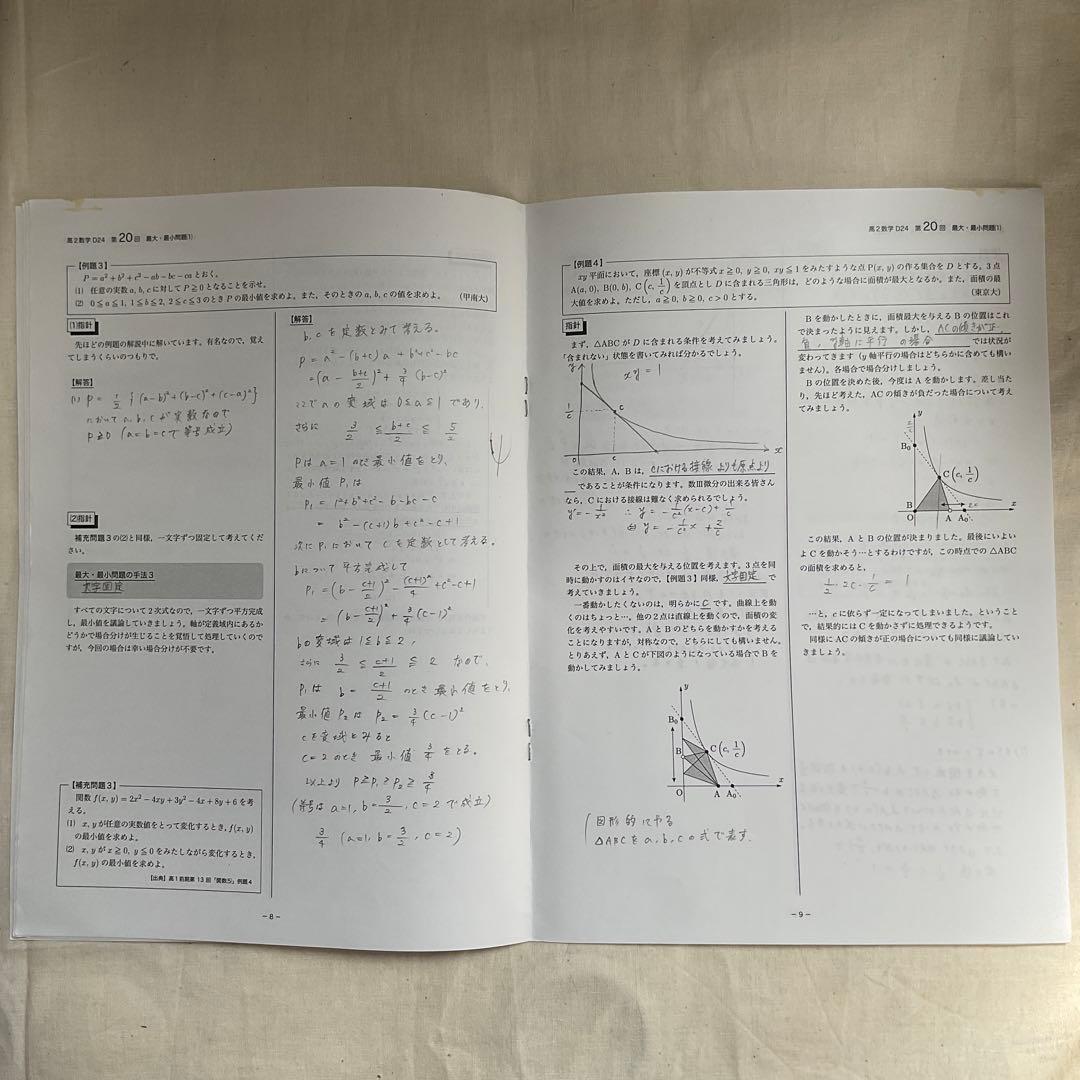 高2数学 D24 第20回 最大・最小問題(1)
【例題3】
P=a²+b²+c²−ab−bc−ca とおく。
(1) 任意の実数 a, b, c に対して P≧0 となることを示せ。
(2) 0≦a≦1, 1≦b≦2, 2≦c≦3 のとき P の最小値を求めよ。また、そのときの a, b, c の値を求めよ。 (甲南大)
(1)指針
先ほどの例題の解説中に解いています。有名なので、覚え
てしまうくらいのつもりで。
【解答】
(1) P = 1/2 {(a-b)²+(b-c)²+(c-a)²}
において a, b, c が実数なので
P≧0 (a=b=cで等号成立)
(2)指針
補充問題3の(2)と同様、一文字ずつ固定して考えてくだ
さい。
最大・最小問題の手法3
文字固定
すべての文字について2次式なので、一文字ずつ平方完成
し、最小値を議論していきましょう。軸が定義域内にあるか
どうかで場合分けが生じることを覚悟して処理していくので
すが、今回の場合は幸い場合分けが不要です。
【補充問題3】
関数 f(x, y)=2x²−4xy+3y²−4x+8y+6 を考
える。
(1) x, y が任意の実数値をとって変化するとき、f(x, y)
の最小値を求めよ。
(2) x, y が x≧0, y≦0 をみたしながら変化するとき、
f(x, y) の最小値を求めよ。
【出典】高1前期第13回「関数(5)」例題4
【解答】
b, c を定数とみて考える。
P = a² − (b+c)a + b²+c² − bc
= (a − (b+c)/2)² + 3/4 (b−c)²
ここで a の変域は 0≦a≦1 であり、
さらに 3/2 ≦ (b+c)/2 ≦ 5/2
Pは a=1 のとき最小値をとり、
最小値 P₁は
P₁ = 1²+b²+c²−b−bc−c
= b²−(c+1)b+c²−c+1
次に P₁において c を定数として考える。
bについて平方完成して
P₁ = (b − (c+1)/2)² − (c+1)²/4 + c²−c+1
= (b − (c+1)/2)² + 3/4 (c−1)²
bの変域は 1≦b≦2、
さらに 3/2 ≦ (c+1)/2 ≦ 2 なので、
P₁は b = (c+1)/2 のとき最小値をとり、
最小値 P₂は P₂ = 3/4 (c−1)²
cを変域とみると
c=2のとき 最小値 3/4 をとる。
以上より P≧P₁≧P₂≧ 3/4
(等号は a=1, b=3/2, c=2 で成立)
3/4 (a=1, b=3/2, c=2)
−8−
高2数学 D24 第20回 最大・最小問題(1)
【例題4】
xy 平面において、座標 (x, y) が不等式 x≧0, y≧0, xy≦1 をみたすような点 P(x, y) の作る集合を D とする。3点
A(a, 0), B(0, b), C(c, 1/c) を頂点とし D に含まれる三角形は、どのような場合に面積が最大となるか。また、面積の最
大値を求めよ。ただし、a≧0, b≧0, c>0 とする。 (東京大)
指針
まず、△ABC が D に含まれる条件を考えてみましょう。
「含まれない」状態を書いてみれば分かるでしょう。
y
xy = 1
1/c
C
O c x
この結果、A, B は、Cにおける接線よりも原点より
であることが条件になります。数III微分の出来る皆さん
なら、C における接線は難なく求められるでしょう。
y' = −1/x² ∴ y = −1/c² (x−c) + 1/c
⇔ y = −1/c² x + 2/c
その上で、面積の最大を与える位置を考えます。3点を同
時に動かすのはイヤなので、【例題3】同様、文字固定 で
考えていきましょう。
一番動かしたくないのは、明らかに C です。曲線上を動
くのはちょっと…。他の2点は直線上を動くので、面積の変
化を考えやすいです。A と B のどちらを動かすかを考える
ことになりますが、対称なので、どちらにしても構いません。
とりあえず、A と C が下図のようになっている場合で B を
動かしてみましょう。
y
B₀
B
C(c, 1/c)
O A A₀ x
図形的にやる
△ABCをa, b, cの式で表す.
B を動かしたときに、面積最大を与える B の位置はこれ
で決まったように見えます。しかし、ACの傾きが正、
負、y軸に平行 の場合 では状況が
変わってきます (y 軸平行の場合はどちらかに含めても構い
ません)。各場合で場合分けしましょう。
B の位置を決めた後、今度は A を動かします。差し当た
り、先ほど考えた、AC の傾きが負だった場合について考え
てみましょう。
y
2/c
B₀
C(c, 1/c)
B
2c
x
O A A₀
この結果、A と B の位置が決まりました。最後にいよい
よ C を動かそう…とするわけですが、この時点での △ABC
の面積を求めると、
1/2 · 2c · 1/c = 1
…と、c に依らず一定になってしまいました。ということ
で、結果的には C を動かさずに処理できるようです。
同様に AC の傾きが正の場合についても同様に議論してい
きましょう。
−9−